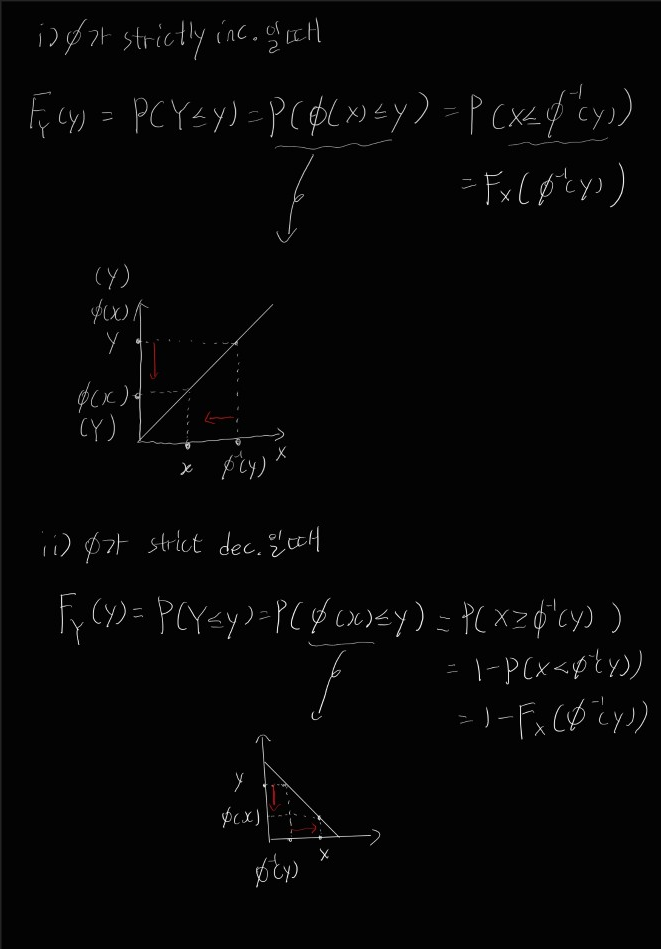 i) ϕ가 strictly inc. 일때
F_Y(y) = P(Y≤y) = P(ϕ(X)≤y) = P(X≤ϕ⁻¹(y))
= F_X(ϕ⁻¹(y))
(Y)
ϕ(x)
y
ϕ(x)
(Y)
x ϕ⁻¹(y) X
ii) ϕ가 strict dec. 일때
F_Y(y) = P(Y≤y) = P(ϕ(x)≤y) = P(X≥ϕ⁻¹(y))
= 1-P(X<ϕ⁻¹(y))
= 1-F_X(ϕ⁻¹(y))
y
ϕ(x)
x
ϕ⁻¹(y)